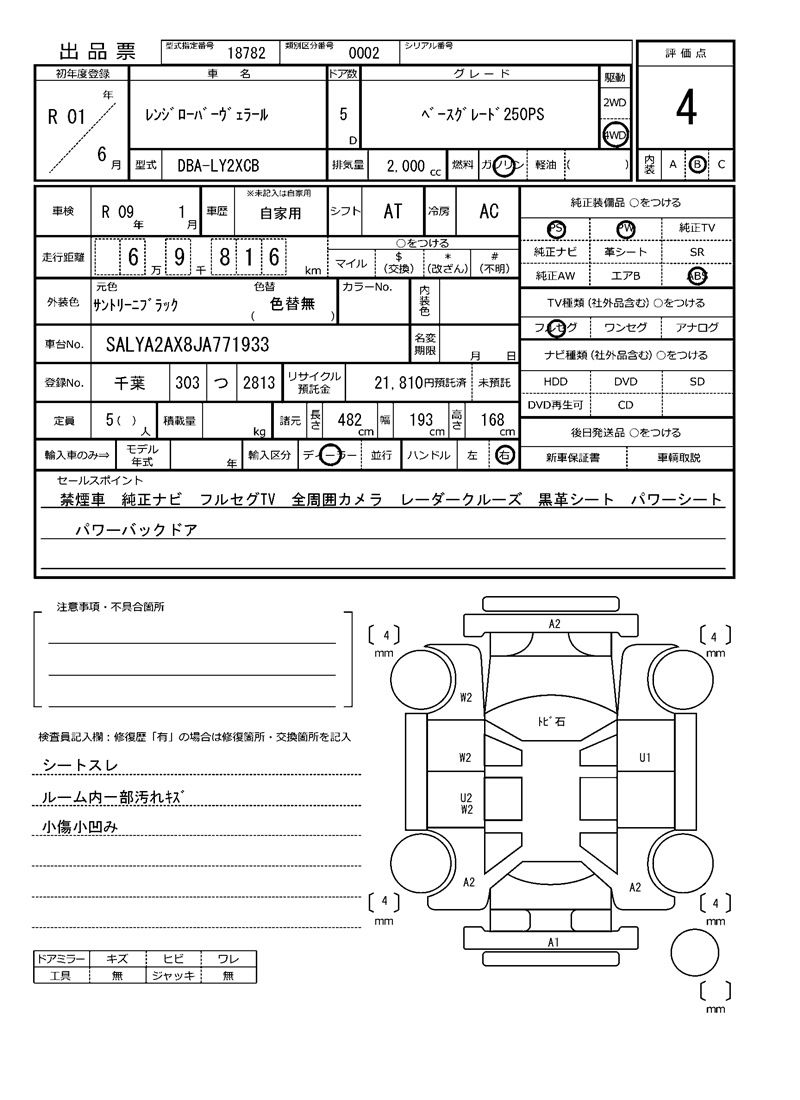 出品票 型式指定番号 18782 類別区分番号 0002 シリアル番号
評価点
4
内装 A B C
初年度登録 車名 ドア数 グレード 駆動
R 01 年 6 月 ﾚﾝｼﾞﾛｰﾊﾞｰｳﾞｪﾗｰﾙ 5 D ﾍﾞｰｽｸﾞﾚｰﾄﾞ250PS 2WD
4WD
型式 DBA-LY2XCB 排気量 2.000 cc 燃料 ガソリン 軽油 ( )
車検 R 09 年 1 月 車歴 ※未記入は自家用 自家用 シフト AT 冷房 AC
走行距離 6 万 9 千 8 1 6 km
○をつける
マイル $ (交換) * (改ざん) # (不明)
外装色 元色 ｻﾝﾄﾘｰﾆﾌﾞﾗｯｸ 色替 ( 色替無 ) カラーNo. 内装色
車台No. SALYA2AX8JA771933 名変期限 月 日
登録No. 千葉 303 つ 2813 リサイクル預託金 21,810円預託済 未預託
定員 5 ( ) 人 積載量 kg 諸元 長さ 482 cm 幅 193 cm 高さ 168 cm
輸入車のみ⇒ モデル年式 年 輸入区分 ディーラー 並行 ハンドル 左 右
純正装備品 ○をつける
PS PW 純正TV
純正ナビ 革シート SR
純正AW エアB ABS
TV種類 (社外品含む) ○をつける
フルセグ ワンセグ アナログ
ナビ種類 (社外品含む) ○をつける
HDD DVD SD
DVD再生可 CD
後日発送品 ○をつける
新車保証書 車輌取説
セールスポイント
禁煙車 純正ナビ フルセグTV 全周囲カメラ レーダークルーズ 黒革シート パワーシート
パワーバックドア
注意事項・不具合箇所
検査員記入欄：修復歴「有」の場合は修復箇所・交換箇所を記入
シートスレ
ルーム内一部汚れｷｽﾞ
小傷小凹み
ドアミラー キズ ヒビ ワレ
工具 無 ジャッキ 無
A2
〔 4 〕 mm
〔 4 〕 mm
W2
ﾄﾋﾞ石
W2
U1
U2
W2
A2
A2
〔 4 〕 mm
〔 4 〕 mm
A1
〔 〕 mm